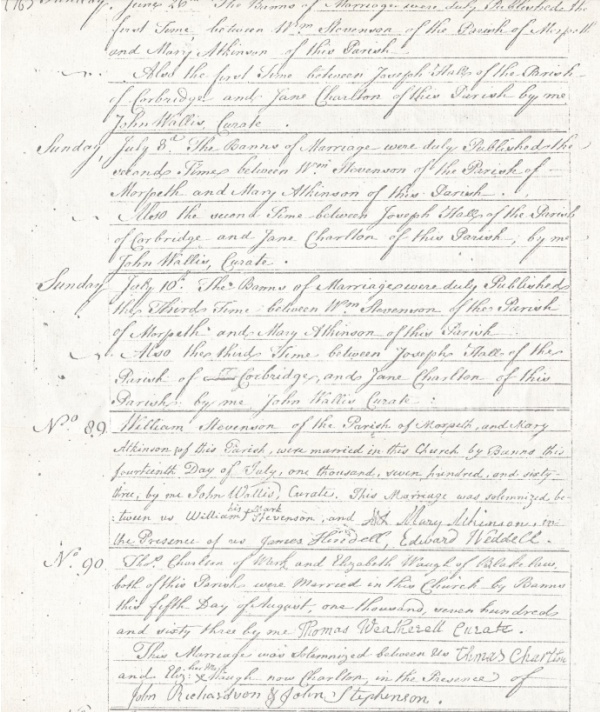 Sunday, June 26th. The Banns of Marriage were duly Published the
first Time, between Wm. Stevenson of the Parish of Morpeth
and Mary Atkinson of this Parish
Also the first Time between Joseph Hall of the Parish
of Corbridge and Jane Charlton of this Parish by me
John Wallis, Curate.
Sunday, July 3d. The Banns of Marriage were duly Published the
second Time between Wm. Stevenson of the Parish of
Morpeth and Mary Atkinson of this Parish.
Also the second Time between Joseph Hall of the Parish
of Corbridge and Jane Charlton of this Parish, by me
John Wallis, Curate.
Sunday July 10th. The Banns of Marriage were duly Published
the Third Time between Wm. Stevenson of the Parish
of Morpeth and Mary Atkinson of this Parish
Also the third Time between Joseph Hall of the
Parish of Corbridge, and Jane Charlton of this
Parish by me John Wallis Curate:
No. 89 William Stevenson of the Parish of Morpeth, and Mary
Atkinson of this Parish, were married in this Church by Banns this
fourteenth Day of July, one thousand, seven hundred, and sixty-
three, by me John Wallis, Curate. This Marriage was solemnized, be-
:tween us William his mark Stevenson, and Mary Atkinson, in
the Presence of us James Hindell, Edward Weddell.
No. 90 Thos. Charlton of Wark and Elizabeth Waugh of Blakelaw,
both of this Parish were Married in this Church by Banns
this fifth Day of August, one thousand, seven hundred
and sixty three by me Thomas Weatherell Curate.
This Marriage was Solemnized between Us Thmas Charlton
and Eliz: her Mark X Waugh now Charlton, in the Presence of
John Richardson & John Stephenson.